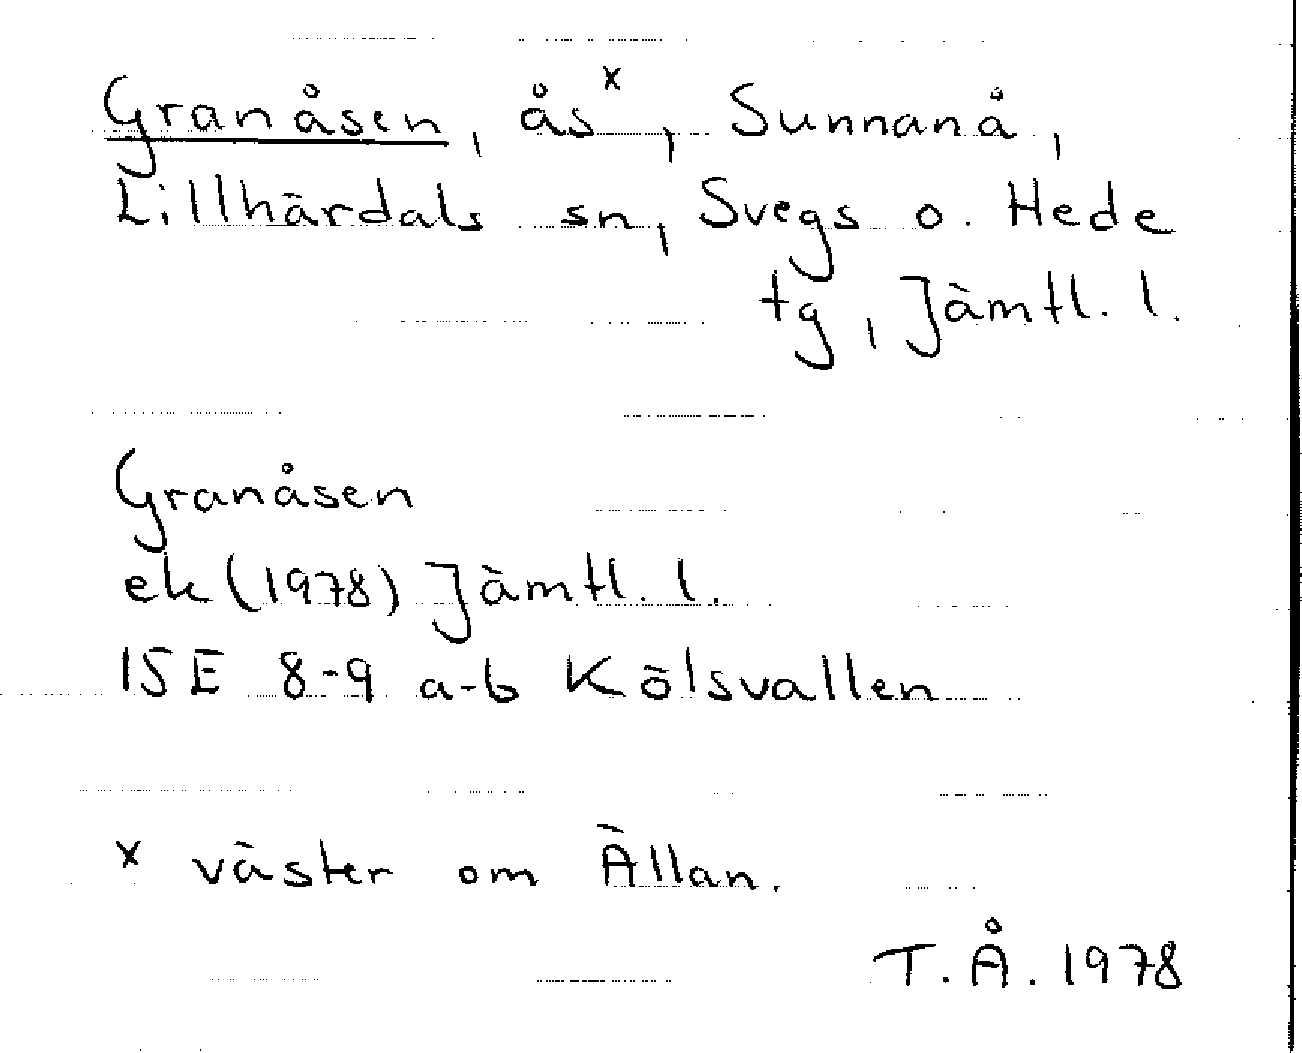 Granåsen, ås x, Sunnanå,
Lillhärdals sn, Svegs o. Hede
tg, Jämtl. l.
Granåsen
ek (1978) Jämtl. l.
15E 8-9 a-b Kölsvallen
x väster om Ällan.
T.Å. 1978